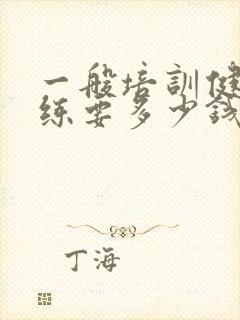 一般培訓健
练要多少钱
丁海